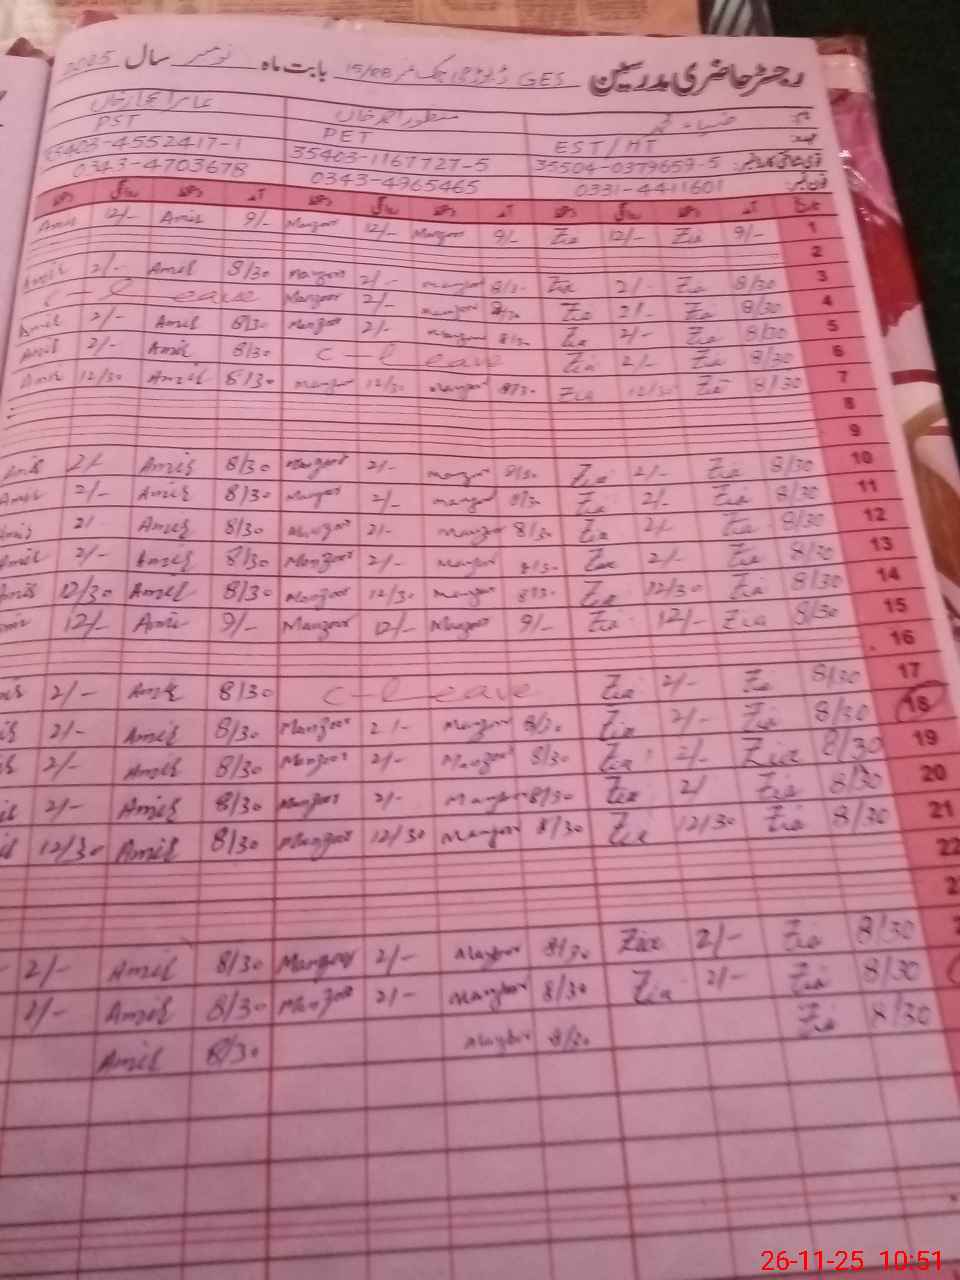 رجسٹر حاضری مدرسین GES ڈیوڑھی چک نمبر 15/GB بابت ماہ نومبر سال 2025
ضیاء منظور احمد خان عامر
EST/HT PET PST
35504-0379659-5 35403-1167727-5 35403-4552417-1
فون نمبر 0331-4411601 0343-4965465 0343-4703678
تاریخ آمد دستخط روانگی دستخط آمد دستخط روانگی دستخط آمد دستخط روانگی دستخط
1 9/- Zia 12/- Zia 9/- Manzoor 12/- Manzoor 9/- Amir 12/- Amir
2
3 8/30 Zia 2/- Zia 8/30 Manzoor 2/- Manzoor 8/30 Amir 2/- Amir
4 8/30 Zia 2/- Zia 8/30 Manzoor 2/- Manzoor c-leave
5 8/30 Zia 2/- Zia 8/30 Manzoor 2/- Manzoor 8/30 Amir 2/- Amir
6 8/30 Zia 2/- Zia c-leave 8/30 Amir 2/- Amir
7 8/30 Zia 12/30 Zia 8/30 Manzoor 12/30 Manzoor 8/30 Amir 12/30 Amir
8
9
10 8/30 Zia 2/- Zia 8/30 Manzoor 2/- Manzoor 8/30 Amir 2/- Amir
11 8/30 Zia 2/- Zia 8/30 Manzoor 2/- Manzoor 8/30 Amir 2/- Amir
12 8/30 Zia 2/- Zia 8/30 Manzoor 2/- Manzoor 8/30 Amir 2/- Amir
13 8/30 Zia 2/- Zia 8/30 Manzoor 2/- Manzoor 8/30 Amir 2/- Amir
14 8/30 Zia 12/30 Zia 8/30 Manzoor 12/30 Manzoor 8/30 Amir 12/30 Amir
15 8/30 Zia 12/- Zia 9/- Manzoor 12/- Manzoor 9/- Amir 12/- Amir
16
17 8/30 Zia 2/- Zia c-leave 8/30 Amir 2/-
18 8/30 Zia 2/- Zia 8/30 Manzoor 2/- Manzoor 8/30 Amir 2/-
19 8/30 Zia 2/- Zia 8/30 Manzoor 2/- Manzoor 8/30 Amir 2/-
20 8/30 Zia 2/ Zia 8/30 Manzoor 2/- Manzoor 8/30 Amir 2/-
21 8/30 Zia 12/30 Zia 8/30 Manzoor 12/30 Manzoor 8/30 Amir 12/30
22
8/30 Zia 2/- Zia 8/30 Manzoor 2/- Manzoor 8/30 Amir 2/-
8/30 Zia 2/- Zia 8/30 Manzoor 2/- Manzoor 8/30 Amir 2/-
8/30 Zia 8/30 Manzoor 8/30 Amir
26-11-25 10:51